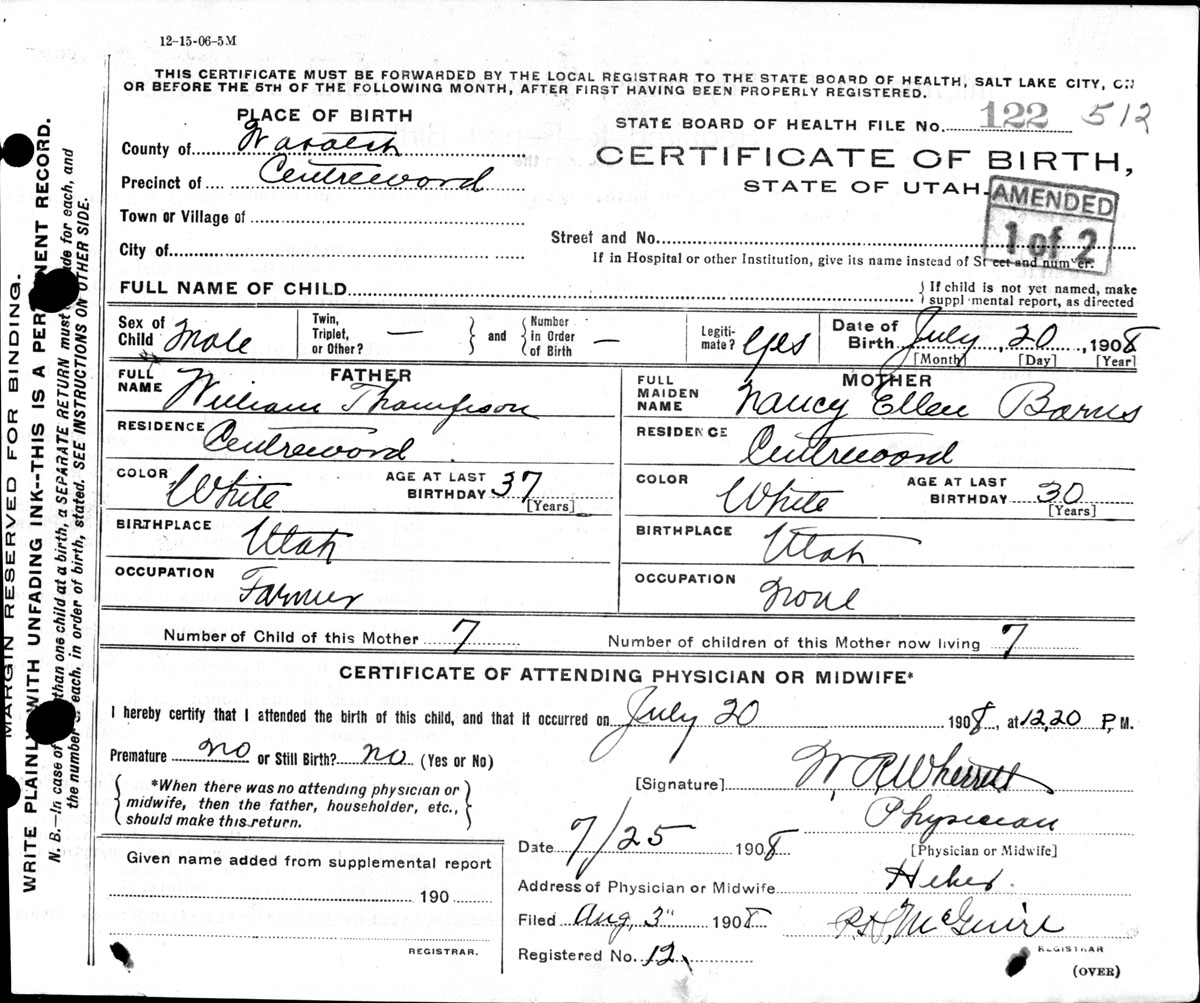 12-15-06-5M
THIS CERTIFICATE MUST BE FORWARDED BY THE LOCAL REGISTRAR TO THE STATE BOARD OF HEALTH, SALT LAKE CITY, ON
OR BEFORE THE 5TH OF THE FOLLOWING MONTH, AFTER FIRST HAVING BEEN PROPERLY REGISTERED.
PLACE OF BIRTH
STATE BOARD OF HEALTH FILE No. 122 512
County of Wasatch
CERTIFICATE OF BIRTH,
Precinct of Centreword
STATE OF UTAH.
AMENDED
1 of 2
Town or Village of
Street and No.
City of
If in Hospital or other Institution, give its name instead of Street and number.
FULL NAME OF CHILD
If child is not yet named, make
supplemental report, as directed
Sex of Child Male
Twin, Triplet, or Other? —
and
Number in Order of Birth —
Legiti-mate? Yes
Date of Birth July 20, 1908
[Month] [Day] [Year]
FATHER
FULL NAME William Thompson
RESIDENCE Centreword
COLOR White
AGE AT LAST BIRTHDAY 37
[Years]
BIRTHPLACE Utah
OCCUPATION Farmer
MOTHER
FULL MAIDEN NAME Nancy Ellen Barns
RESIDENCE Centreword
COLOR White
AGE AT LAST BIRTHDAY 30
[Years]
BIRTHPLACE Utah
OCCUPATION None
Number of Child of this Mother 7
Number of children of this Mother now living 7
CERTIFICATE OF ATTENDING PHYSICIAN OR MIDWIFE*
I hereby certify that I attended the birth of this child, and that it occurred on July 20 1908, at 12,20 P. M.
Premature no or Still Birth? no (Yes or No)
*When there was no attending physician or
midwife, then the father, householder, etc.,
should make this return.
[Signature] W. R. Wherrett
Physician
[Physician or Midwife]
Date 7/25 1908
Address of Physician or Midwife Heber
Filed Aug, 3" 1908
McGuire
REGISTRAR
Registered No. 12
(OVER)
Given name added from supplemental report
190
REGISTRAR.
MARGIN RESERVED FOR BINDING.
WRITE PLAINLY WITH UNFADING INK--THIS IS A PERMANENT RECORD.
N. B.—In case of than one child at a birth, a SEPARATE RETURN must made for each, and
the number each, in order of birth, stated. SEE INSTRUCTIONS ON OTHER SIDE.